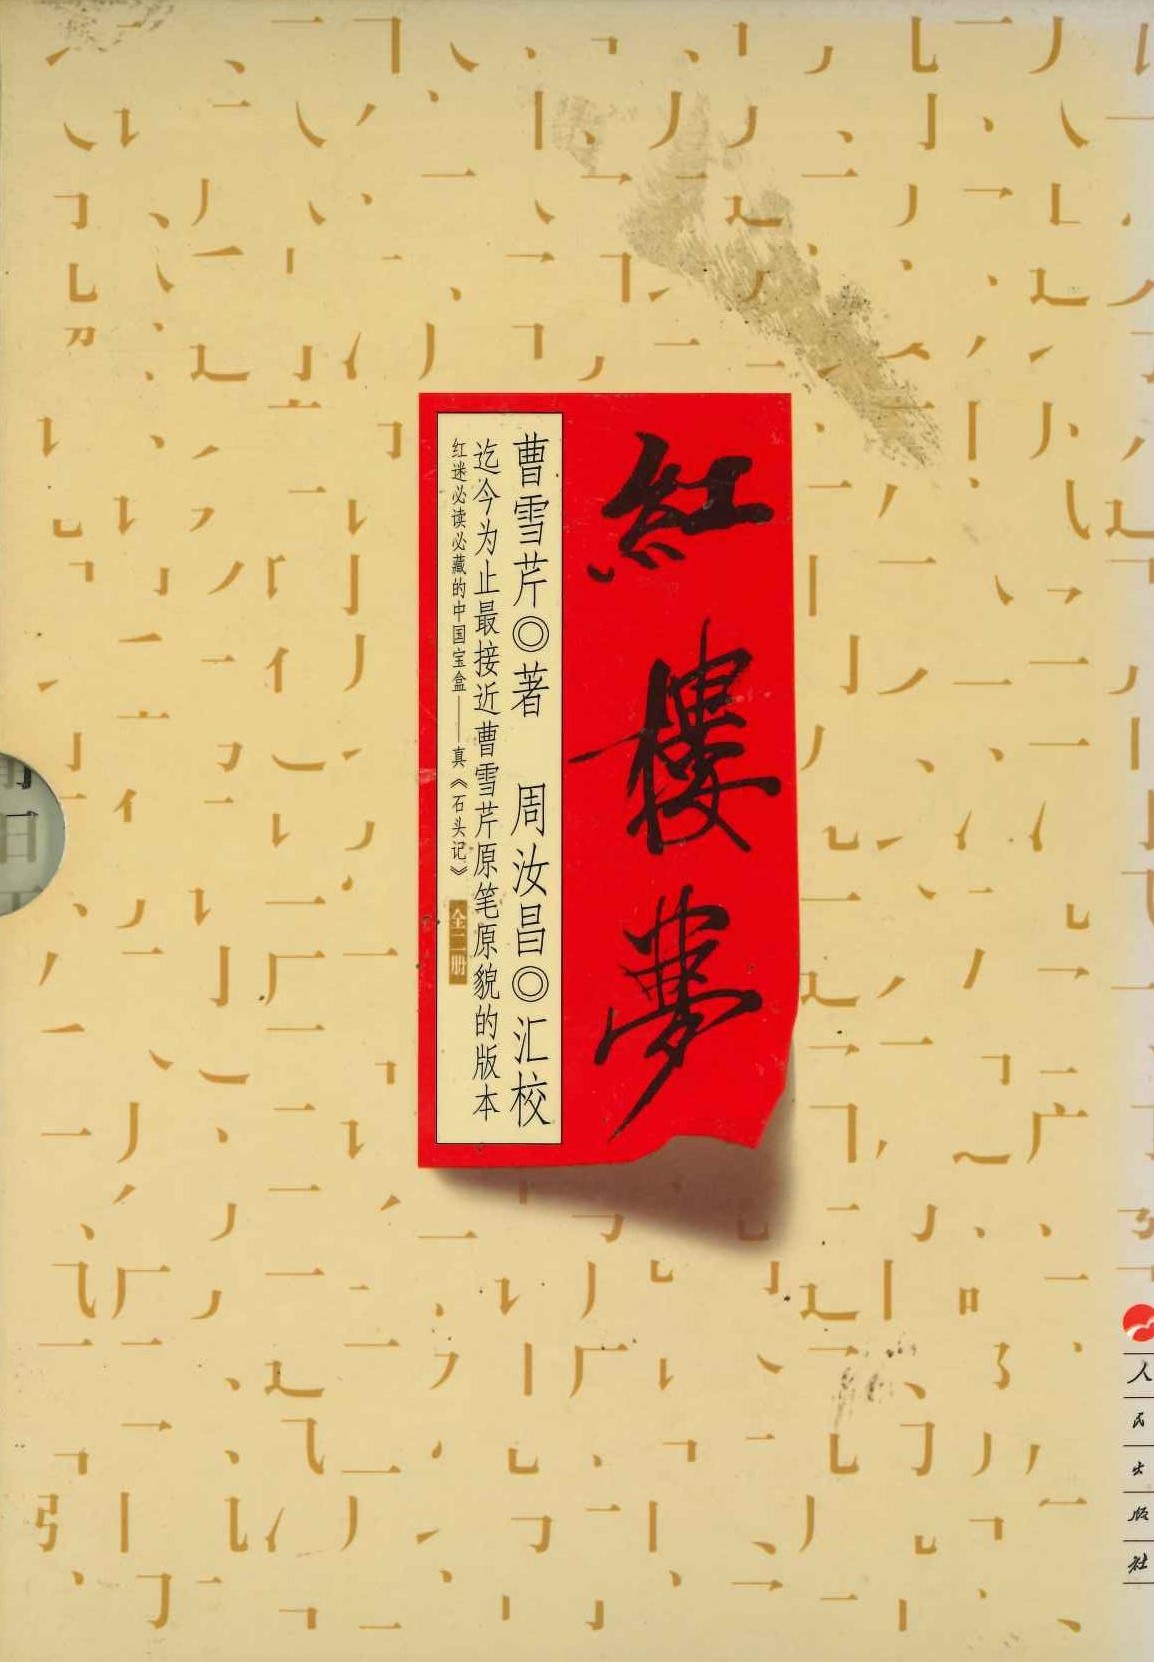 紅樓夢
曹雪芹◎著 周汝昌◎汇校
迄今为止最接近曹雪芹原笔原貌的版本
红迷必读必藏的中国宝盒——真《石头记》
全二册
人民出版社